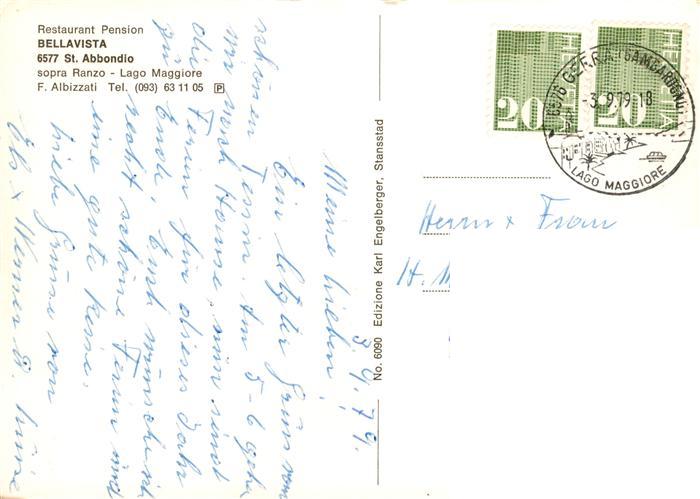 Restaurant Pension
BELLAVISTA
6577 St. Abbondio
sopra Ranzo - Lago Maggiore
F. Albizzati Tel. (093) 63 11 05 P
3. 9. 79.
Meine Lieben!
Ein letzter Gruss vom
schönen Tessin. Am 5-6 geh
wir nach Hause, nun sind
die Ferien für dieses Jahr
zu Ende. Euch wünschen
recht schöne Ferien und
eine gute Reise.
Liebe Grüsse von
Werner
No. 6090 Edizione Karl Engelberger, Stansstad
HELVETIA
20
HELVETIA
20
6576 GERRA (GAMBAROGNO)
-3.9.79-18
LAGO MAGGIORE
Herrn & Frau
H. M